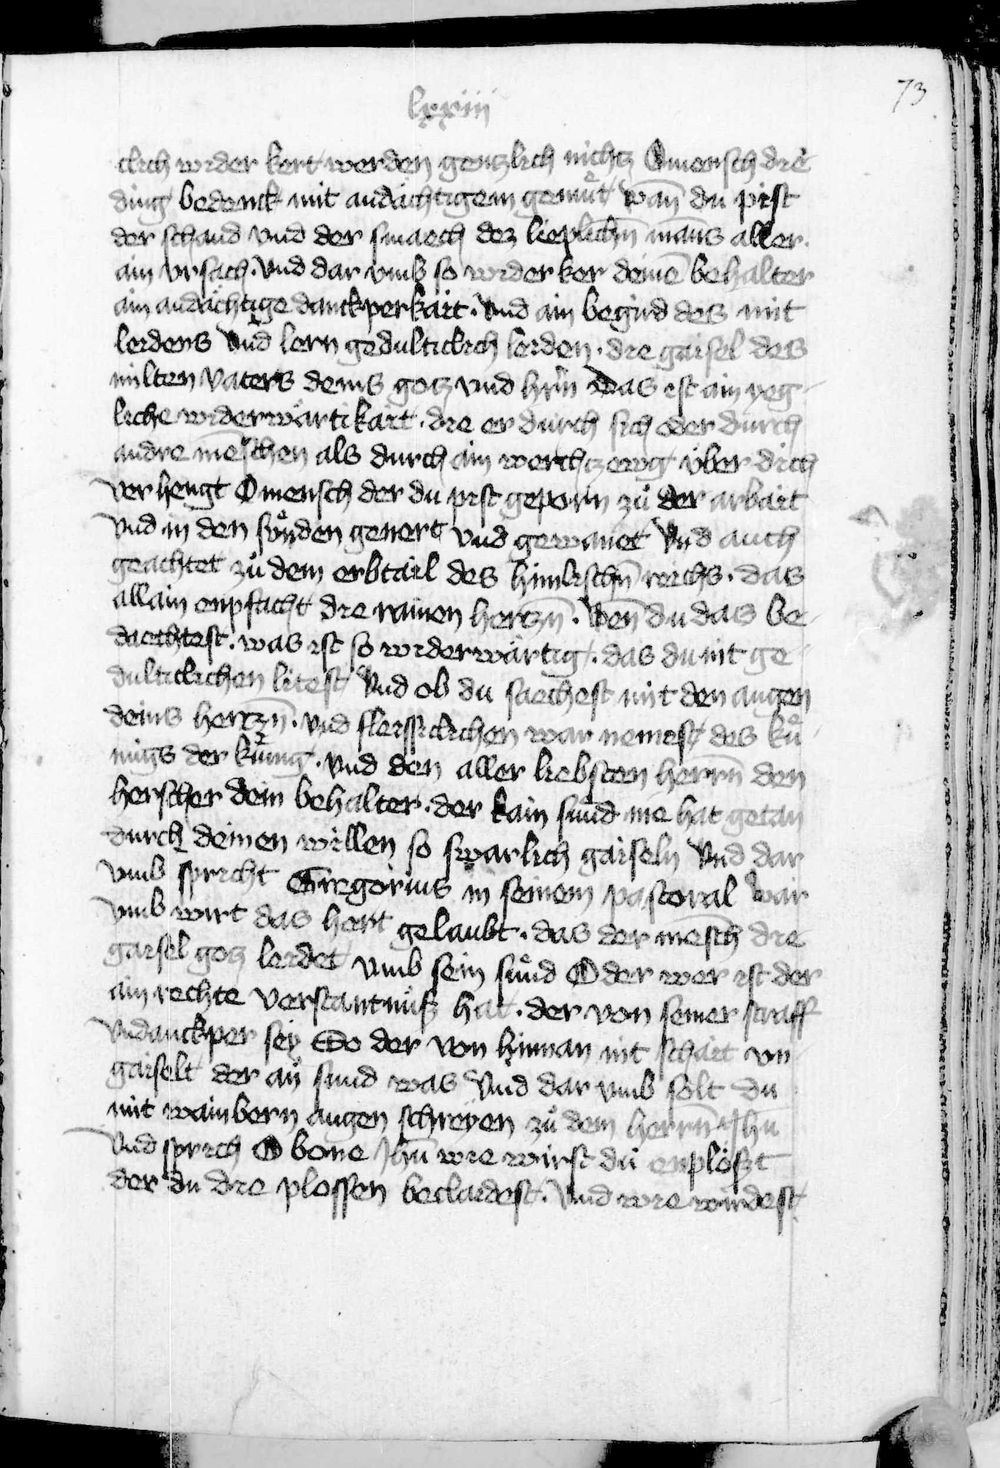 73
lxxiii
clich wider kert werden gentzlich nichtz O mensch die
ding bedenck mit andächtigem gemüt wan̄ du pist
der schand vnd der smaech dez lieplichn̄ mans aller
ain vrsach · vnd dar vmb so wider ker deinē behalter
ain andächtige danckperkait · vnd ain begird des mit
leidens vnd lern gedulticlich leiden · die gaisel des
milten vaters deins gotz vnd hrn̄ Das ist ain yeg
liche widerwärtikait · die er durch sich oder durch
andre mēschen als durch ain werchczewg über dich
verhengt O mensch der du pist geporn zů der arbait
vnd in den sünden genert vnd gewanet vnd auch
geachtet zů dem erbtail des himlischn̄ reichs · das
allain enpfacht die rainen hertzn̄ · Wen̄ du das be
daechtest · was ist so widerwärtig · das du nit ge
dulticlichen litest vnd ob du saechest mit den augen
deins hertzn̄ · vnd fleissiclichen war nemest des kü
nigs der küng · vnd den aller liebsten herrn̄ den
herscher dein behalter · der kain sünd nie hat getan
durch deinen willen so swarlich gaiseln vnd dar
vmb spricht Gregorius in seinem pastoral war
vmb wirt das hert gelaubt · das der mēsch die
gaisel gotz leidet vmb sein sünd Oder wer ist der
ain rechte verstantnüß hat · der von seiner straff
vndanckper sey So der von hinnan nit schait vn
gaiselt der an̄ sünd was vnd dar vmb solt du
mit wainbern augen schreyen zů dem herrn̄ Jhū
vnd sprich O bone Jhū wie wirst du enplößt
der du die plossen beclaidest · vnd wie wirdest